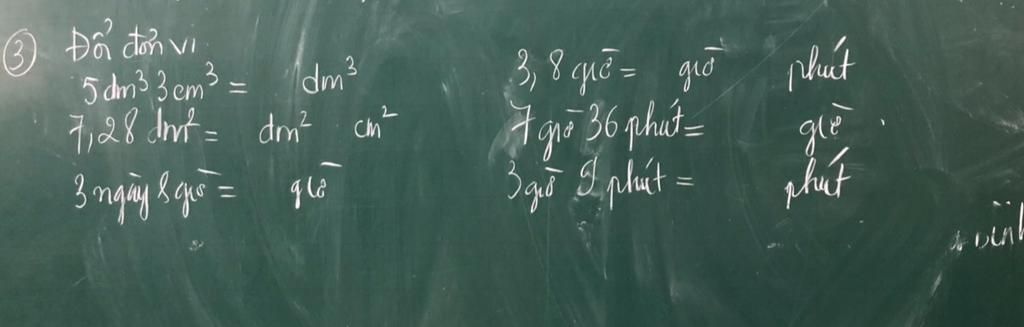 ③ Đổi đơn vị
5dm³ 3cm³ = dm³
7,28 dm² = dm² cm²
3 ngày 8 giờ = giờ
3,8 giờ = giờ phút
7 giờ 36 phút = giờ
3 giờ 9 phút = phút